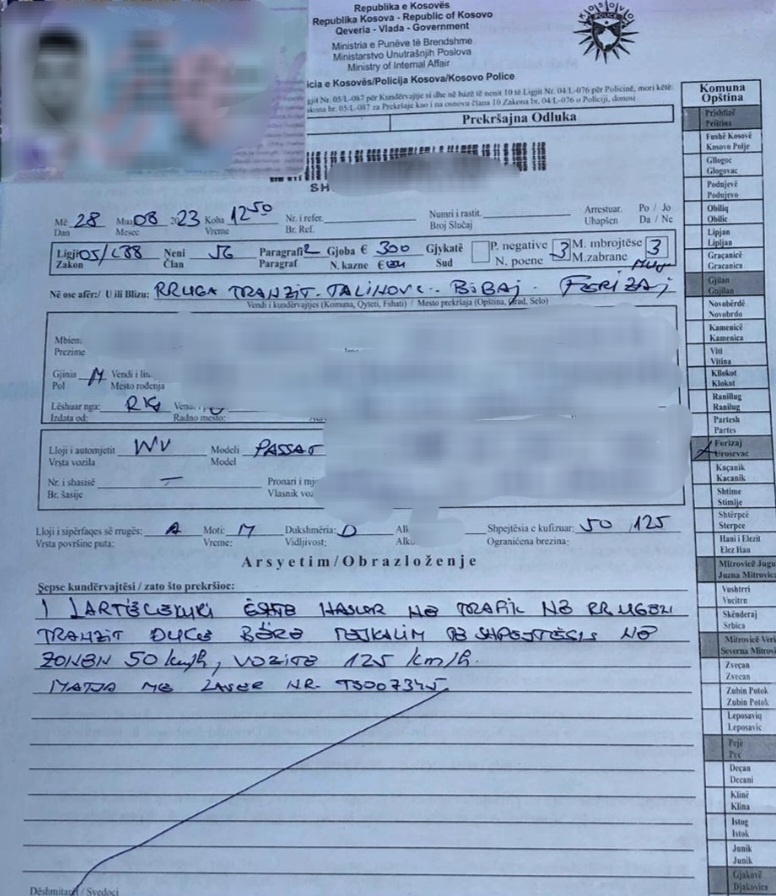 Republika e Kosovës
Republika Kosova - Republic of Kosovo
Qeveria - Vlada - Government
Ministria e Punëve të Brendshme
Ministarstvo Unutrašnjih Poslova
Ministry of Internal Affair
icia e Kosovës/Policija Kosova/Kosovo Police
KOSOVO
POLICE
gjit Nr. 05/L-087 për Kundërvajtje si dhe në bazë të nenit 10 të Ligjit Nr. 04/L-076 për Policinë, mori këtë:
akona br. 05/L-087 za Prekršaje kao i na osnovu člana 10 Zakona br. 04/L-076 o Policiji, donosi
Prekršajna Odluka
SH
Më 28 Muaj 08 2023 Koha 12 50
Dan Mesec Vreme
Nr. i refer.
Br. Ref.
Numri i rastit.
Broj Slučaj
Arrestuar. Po / Jo
Uhapšen. Da / Ne
Ligji 05/L88 Neni 56 Paragrafi 2 Gjoba € 300 Gjykatë P. negative 3 M. mbrojtëse 3
Zakon Član Paragraf N. kazne € Sud N. poene M. zabrane muj
Në ose afër:/ U ili Blizu: RRUGA TRANZIT. TALINOVC - BIBAJ - FERIZAJ
Vendi i kundërvajtjes (Komuna, Qyteti, Fshati) / Mesto prekršaja (Opština, Grad, Selo)
Mbiem
Prezime
Gjinia M Vendi i lin
Pol Mesto rođenja
Lëshuar nga: RKS
Izdata od: Radno mesto:
Lloji i automjetit WV Modeli PASSAT
Vrsta vozila Model
Nr. i shasisë - Pronari i mje
Br. šasije Vlasnik voz
Lloji i sipërfaqes së rrugës: A Moti: M Dukshmëria: D Alk Shpejtësia e kufizuar: 50 / 125
Vrsta površine puta: Vreme: Vidljivost: Alko Ograničena brezina:
Arsyetim/Obrazloženje
Sepse kundërvajtësi / zato što prekršioc:
I LARTËCEKURI ËSHTË HASUR NË TRAFIK NË RRUGEN
TRANZIT DUKE BËRË TEJKALIM TË SHPEJTËSIS NË
ZONEN 50 km/h, VOZITË 125 km/h.
MATJA ME LASER NR. TS007345
Dëshmitari / Svedoci
Komuna
Opština
Prishtinë
Priština
Fushë Kosovë
Kosovo Polje
Gllogoc
Glogovac
Podujevë
Podujevo
Obiliq
Obilic
Lipjan
Lipljan
Graçanicë
Gracanica
Gjilan
Gnjilan
Novobërdë
Novobrdo
Kamenicë
Kamenica
Viti
Vitina
Kllokot
Klokot
Ranillug
Ranilug
Partesh
Partes
Ferizaj
Urosevac
Kaçanik
Kacanik
Shtime
Stimlje
Shtërpcë
Sterpce
Hani i Elezit
Elez Han
Mitrovicë Jugu
Juzna Mitrovica
Vushtrri
Vucitrn
Skënderaj
Srbica
Mitrovicë Veri
Severna Mitrov
Zveçan
Zvecan
Zubin Potok
Zubin Potok
Leposaviq
Leposavic
Pejë
Pec
Deçan
Decani
Klinë
Klina
Istog
Istok
Junik
Junik
Gjakovë
Djakovica